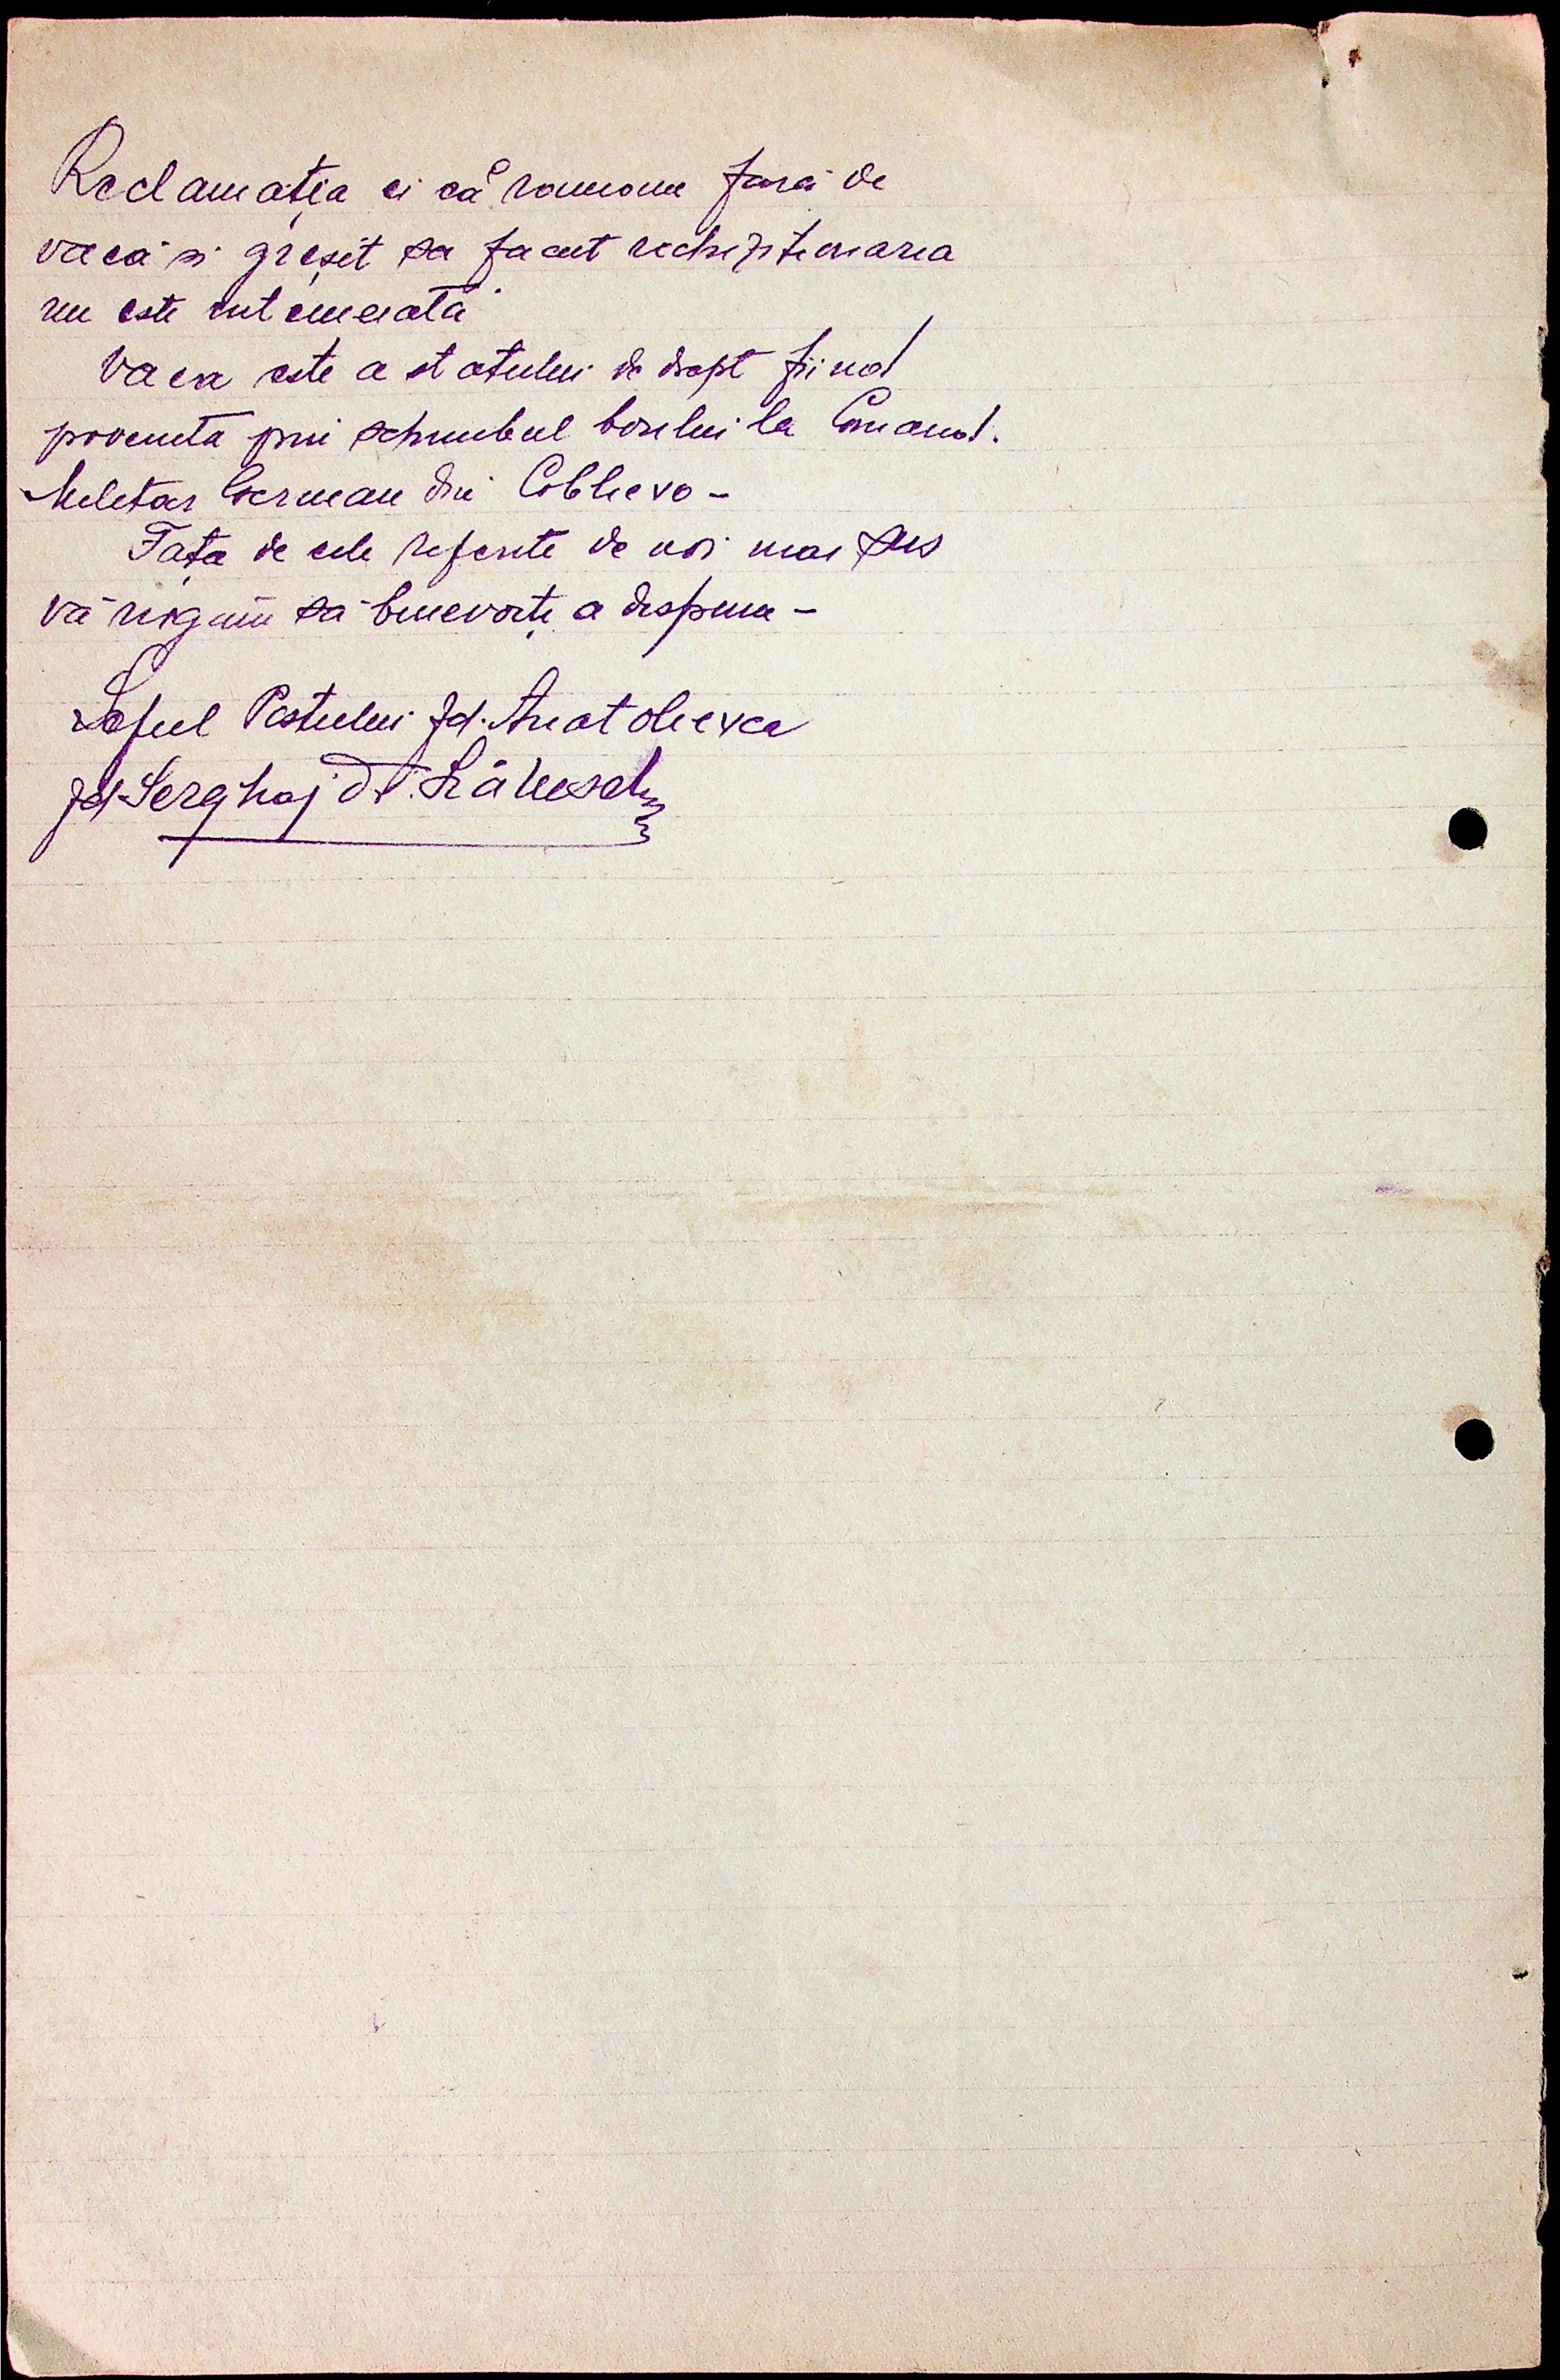 Reclamația ei că ramane fară de
vacă si greșit sa facut rechizitionarea
nu este intemeiată
Vaca este a statului de drept fiind
provenită prin schimbul boului la Comand.
Militar German din Coblievo -
Fața de cele referite de noi mai sus
vă rugăm să binevoiți a dispune -
Șeful Postului Jd. Anatolievca
Jd Serghaj